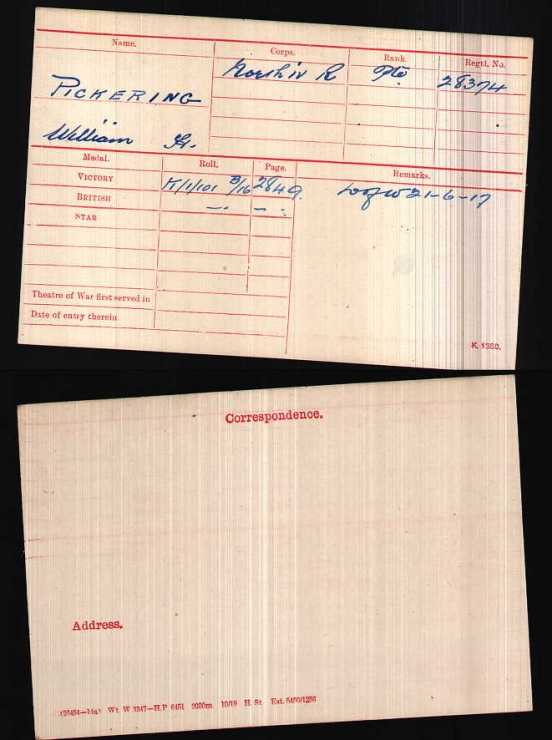 Name. Corps. Rank Regtl. No.
Pte. 28374
PICKERING
William
Medal. Roll. Page. Remarks.
VICTORY K/1/101 B/16 2849. D of W 21-6-17
BRITISH —„— —„—
STAR
Theatre of War first served in
Date of entry therein
K. 1380.
Correspondence.
Address.
Wt W 3347—H.P 6451 2000m 10/19 H. St Est.